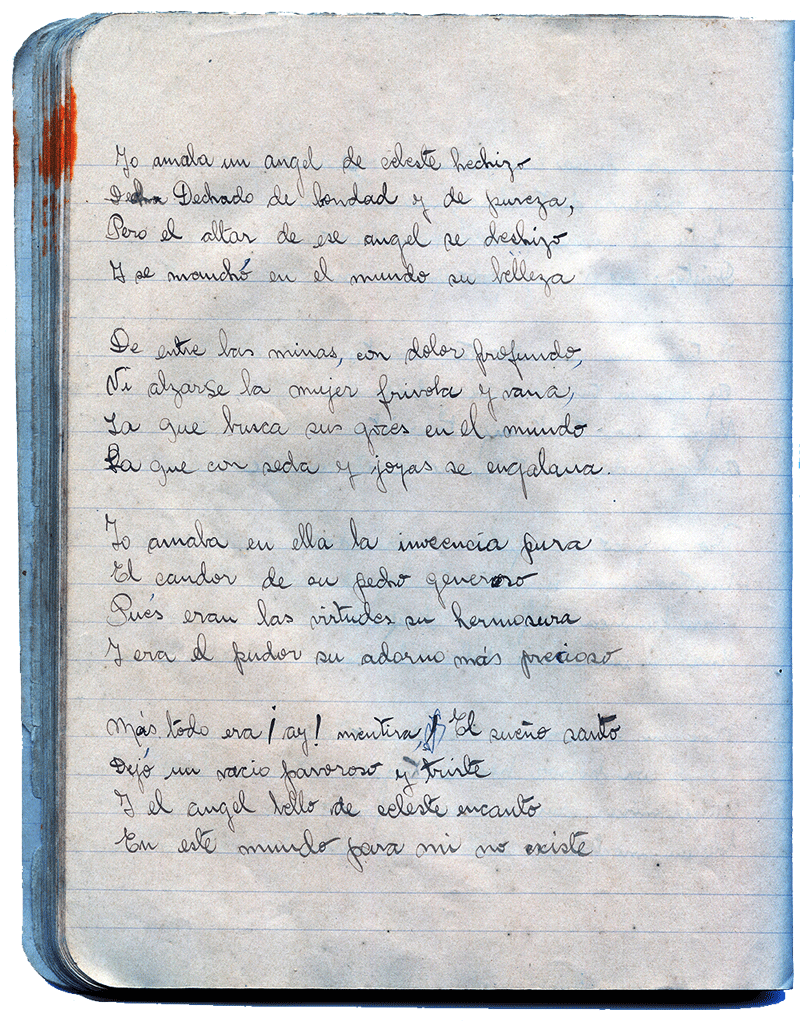 Yo amaba un angel de celeste hechizo
Dechado de bondad y de pureza,
Pero el altar de ese angel se deshizo
Y se manchó en el mundo su belleza
De entre las ruinas, con dolor profundo,
Vi alzarse la mujer frivola y vana,
La que busca sus goces en el mundo
La que con seda y joyas se engalana.
Yo amaba en ella la inocencia pura
El candor de su pecho generoso
Pués eran las virtudes su hermosura
Y era el pudor su adorno más precioso
Más todo era ¡ay! mentira, El sueño santo
Dejó un vacio pavoroso y triste
Y el angel bello de celeste encanto
En este mundo para mi no existe